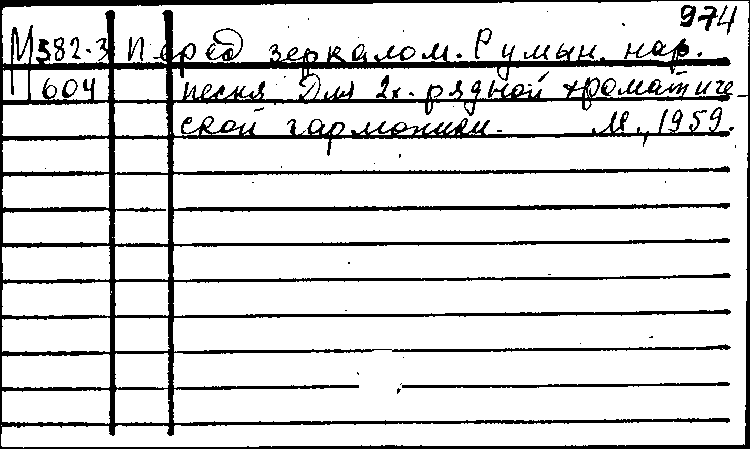 974
М382-3 Перед зеркалом. Румын. нар.
604 песня. Для 2х-рядной хроматиче-
ской гармоники. М., 1959.